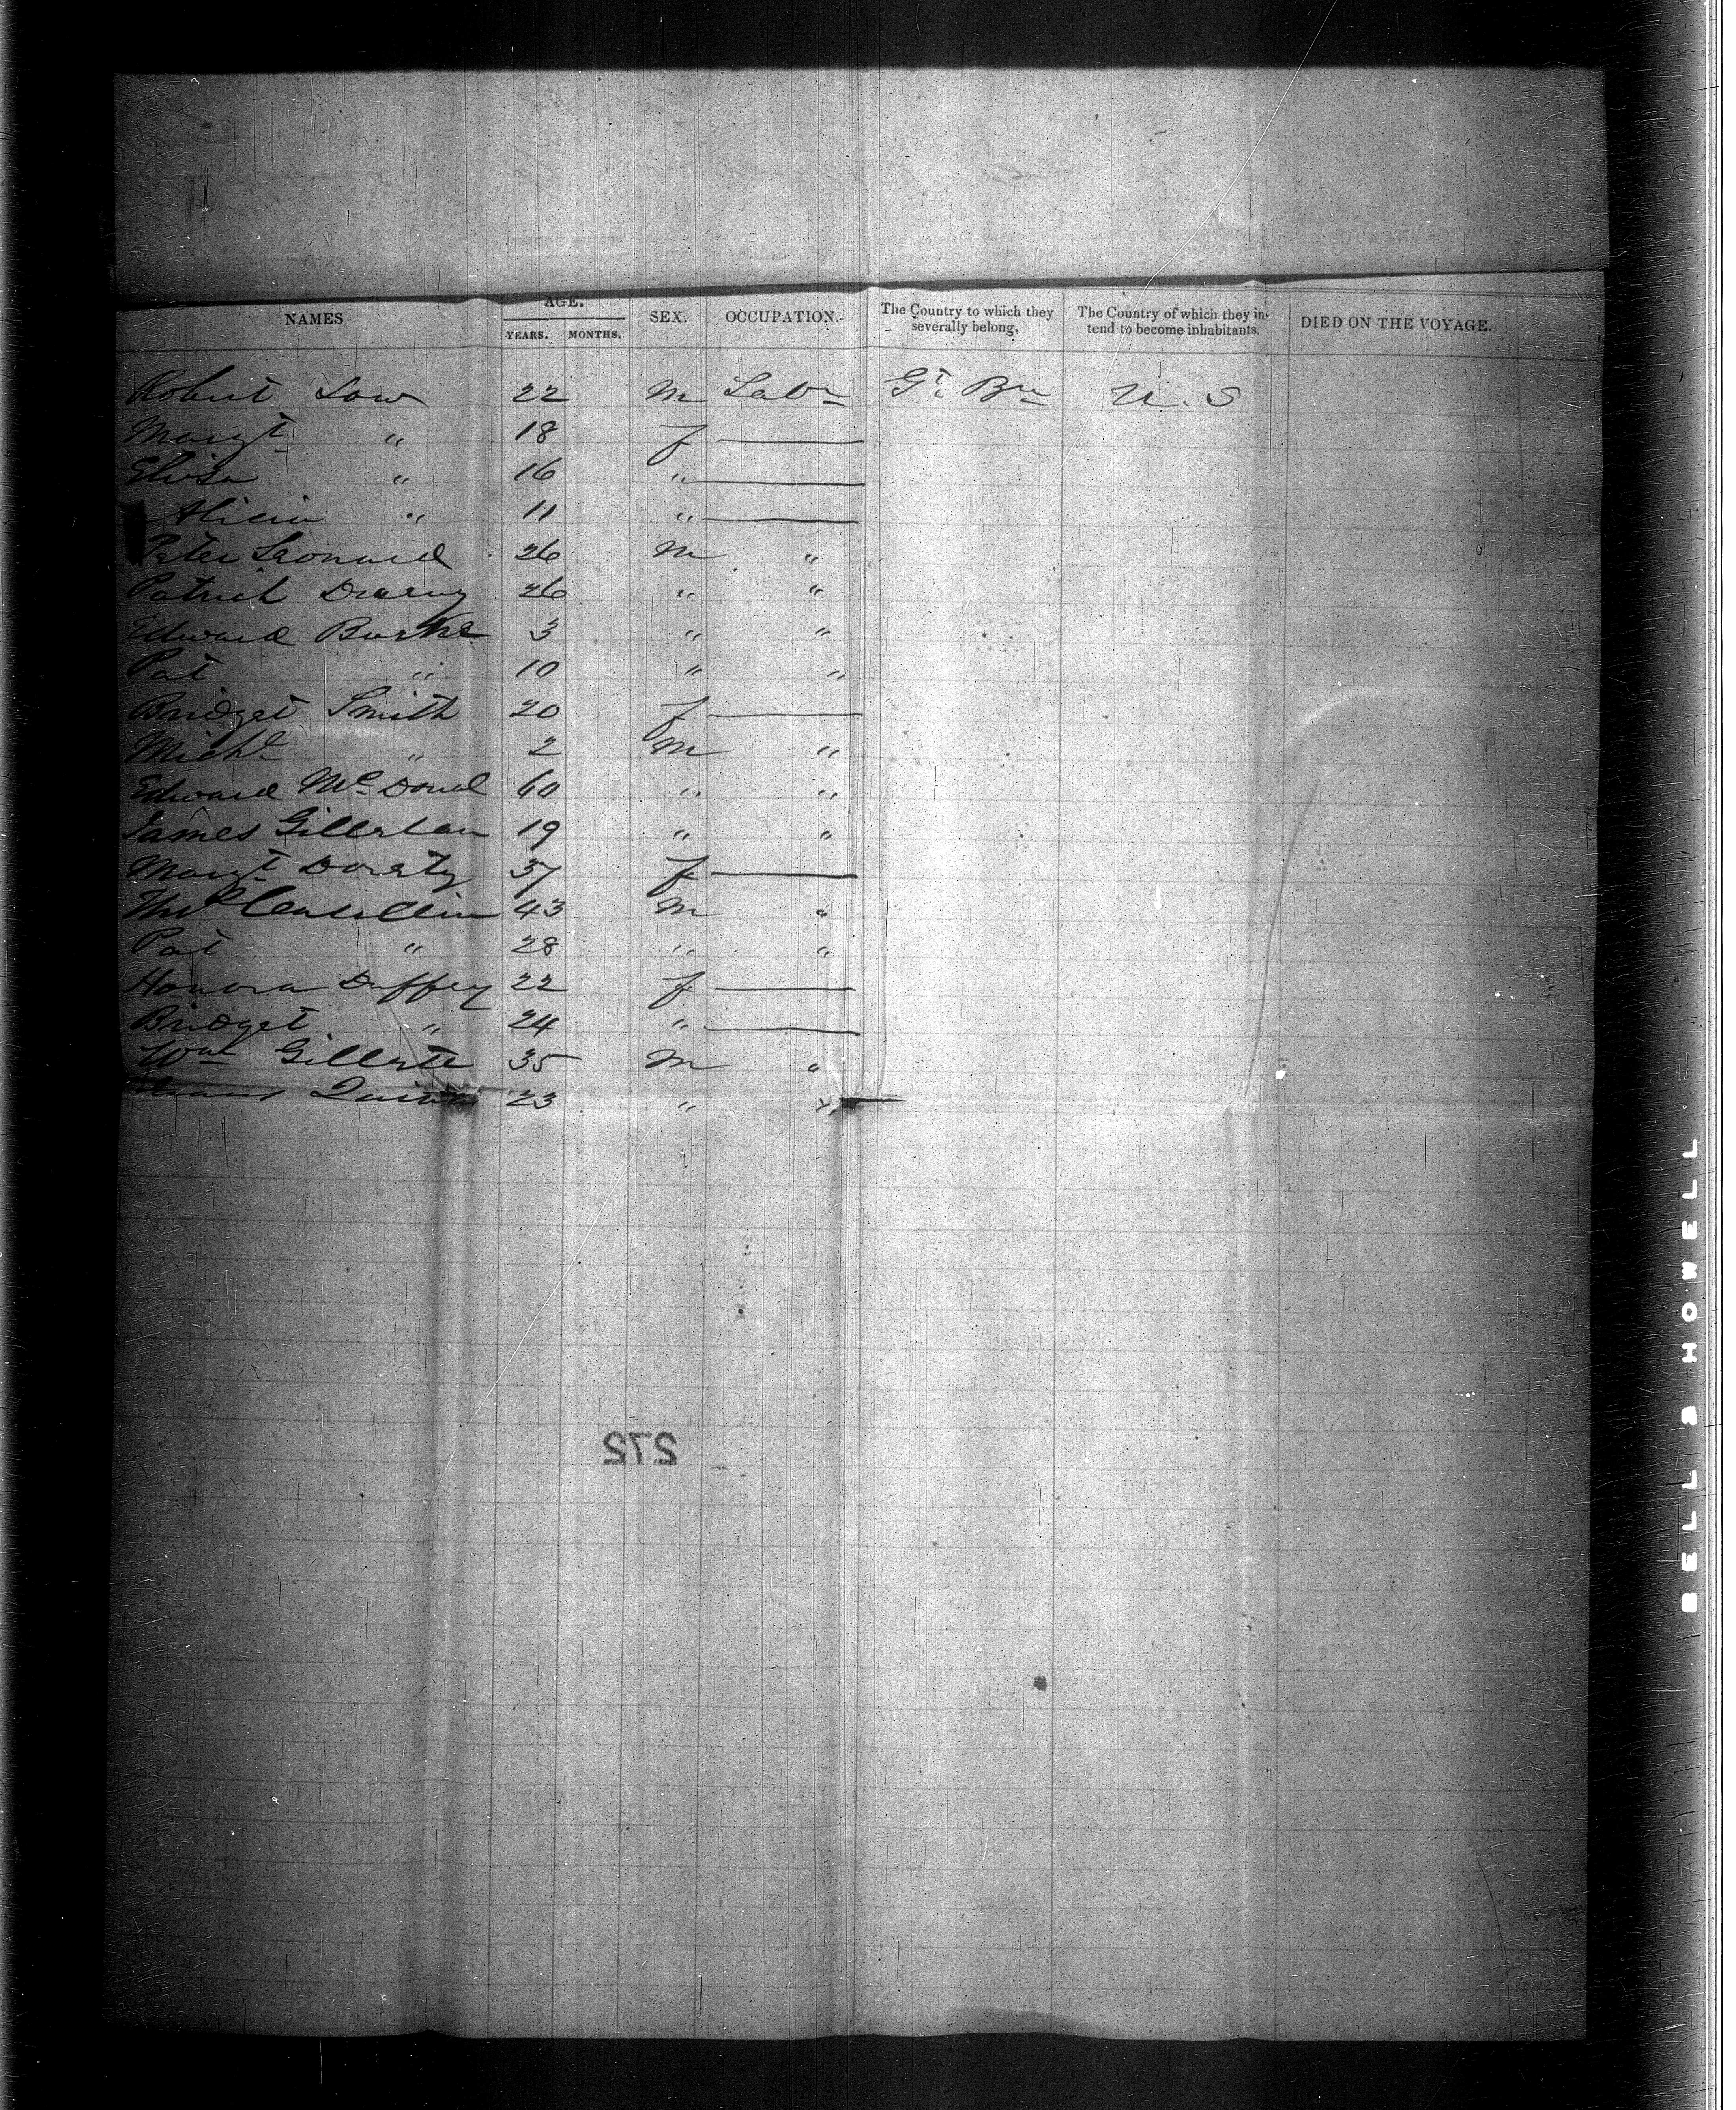 NAMES AGE. YEARS. MONTHS. SEX. OCCUPATION. The Country to which they severally belong. The Country of which they intend to become inhabitants. DIED ON THE VOYAGE.
Robert Low 22 M Labr Gt. Brn U.S
Margt " 18 f
Eliza " 16 "
Alicia " 11 "
Peter Leonard 26 M "
Patrick 26 " "
Edward Burke 3 " "
Pat " 10 " "
Bridget Smith 20 f
Michl " 2 M "
Edward McDonal 60 " "
James 19 " "
Margt 37 f
43 M "
Pat " 28 " "
Honora Duffey 22 f
Bridget " 24 "
Wm 35 M "
23 " "
272
BELL & HOWELL